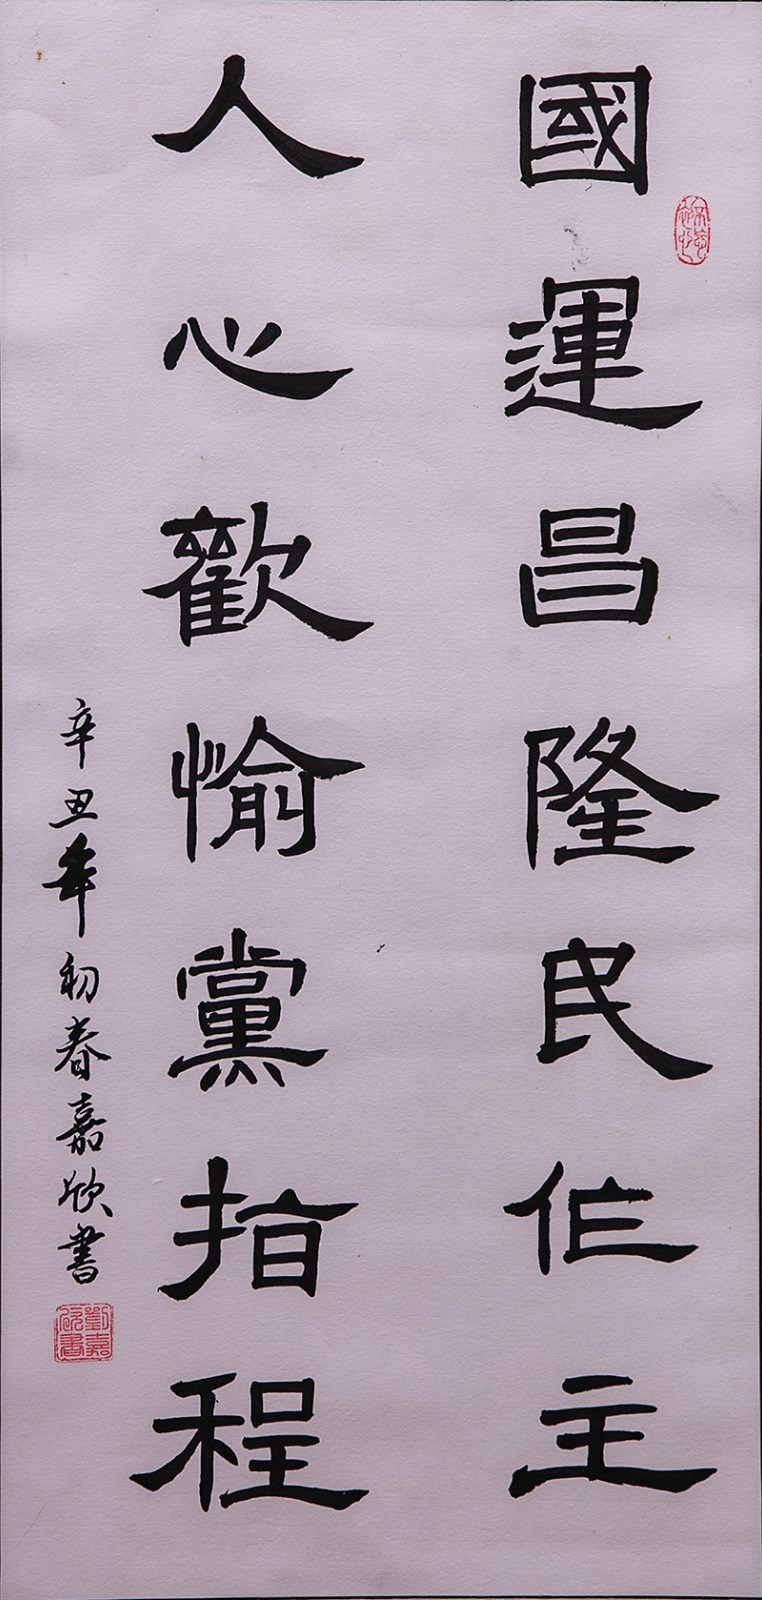 國運昌隆民作主
人心歡愉黨指程
辛丑年初春嘉欣書
劉嘉欣書